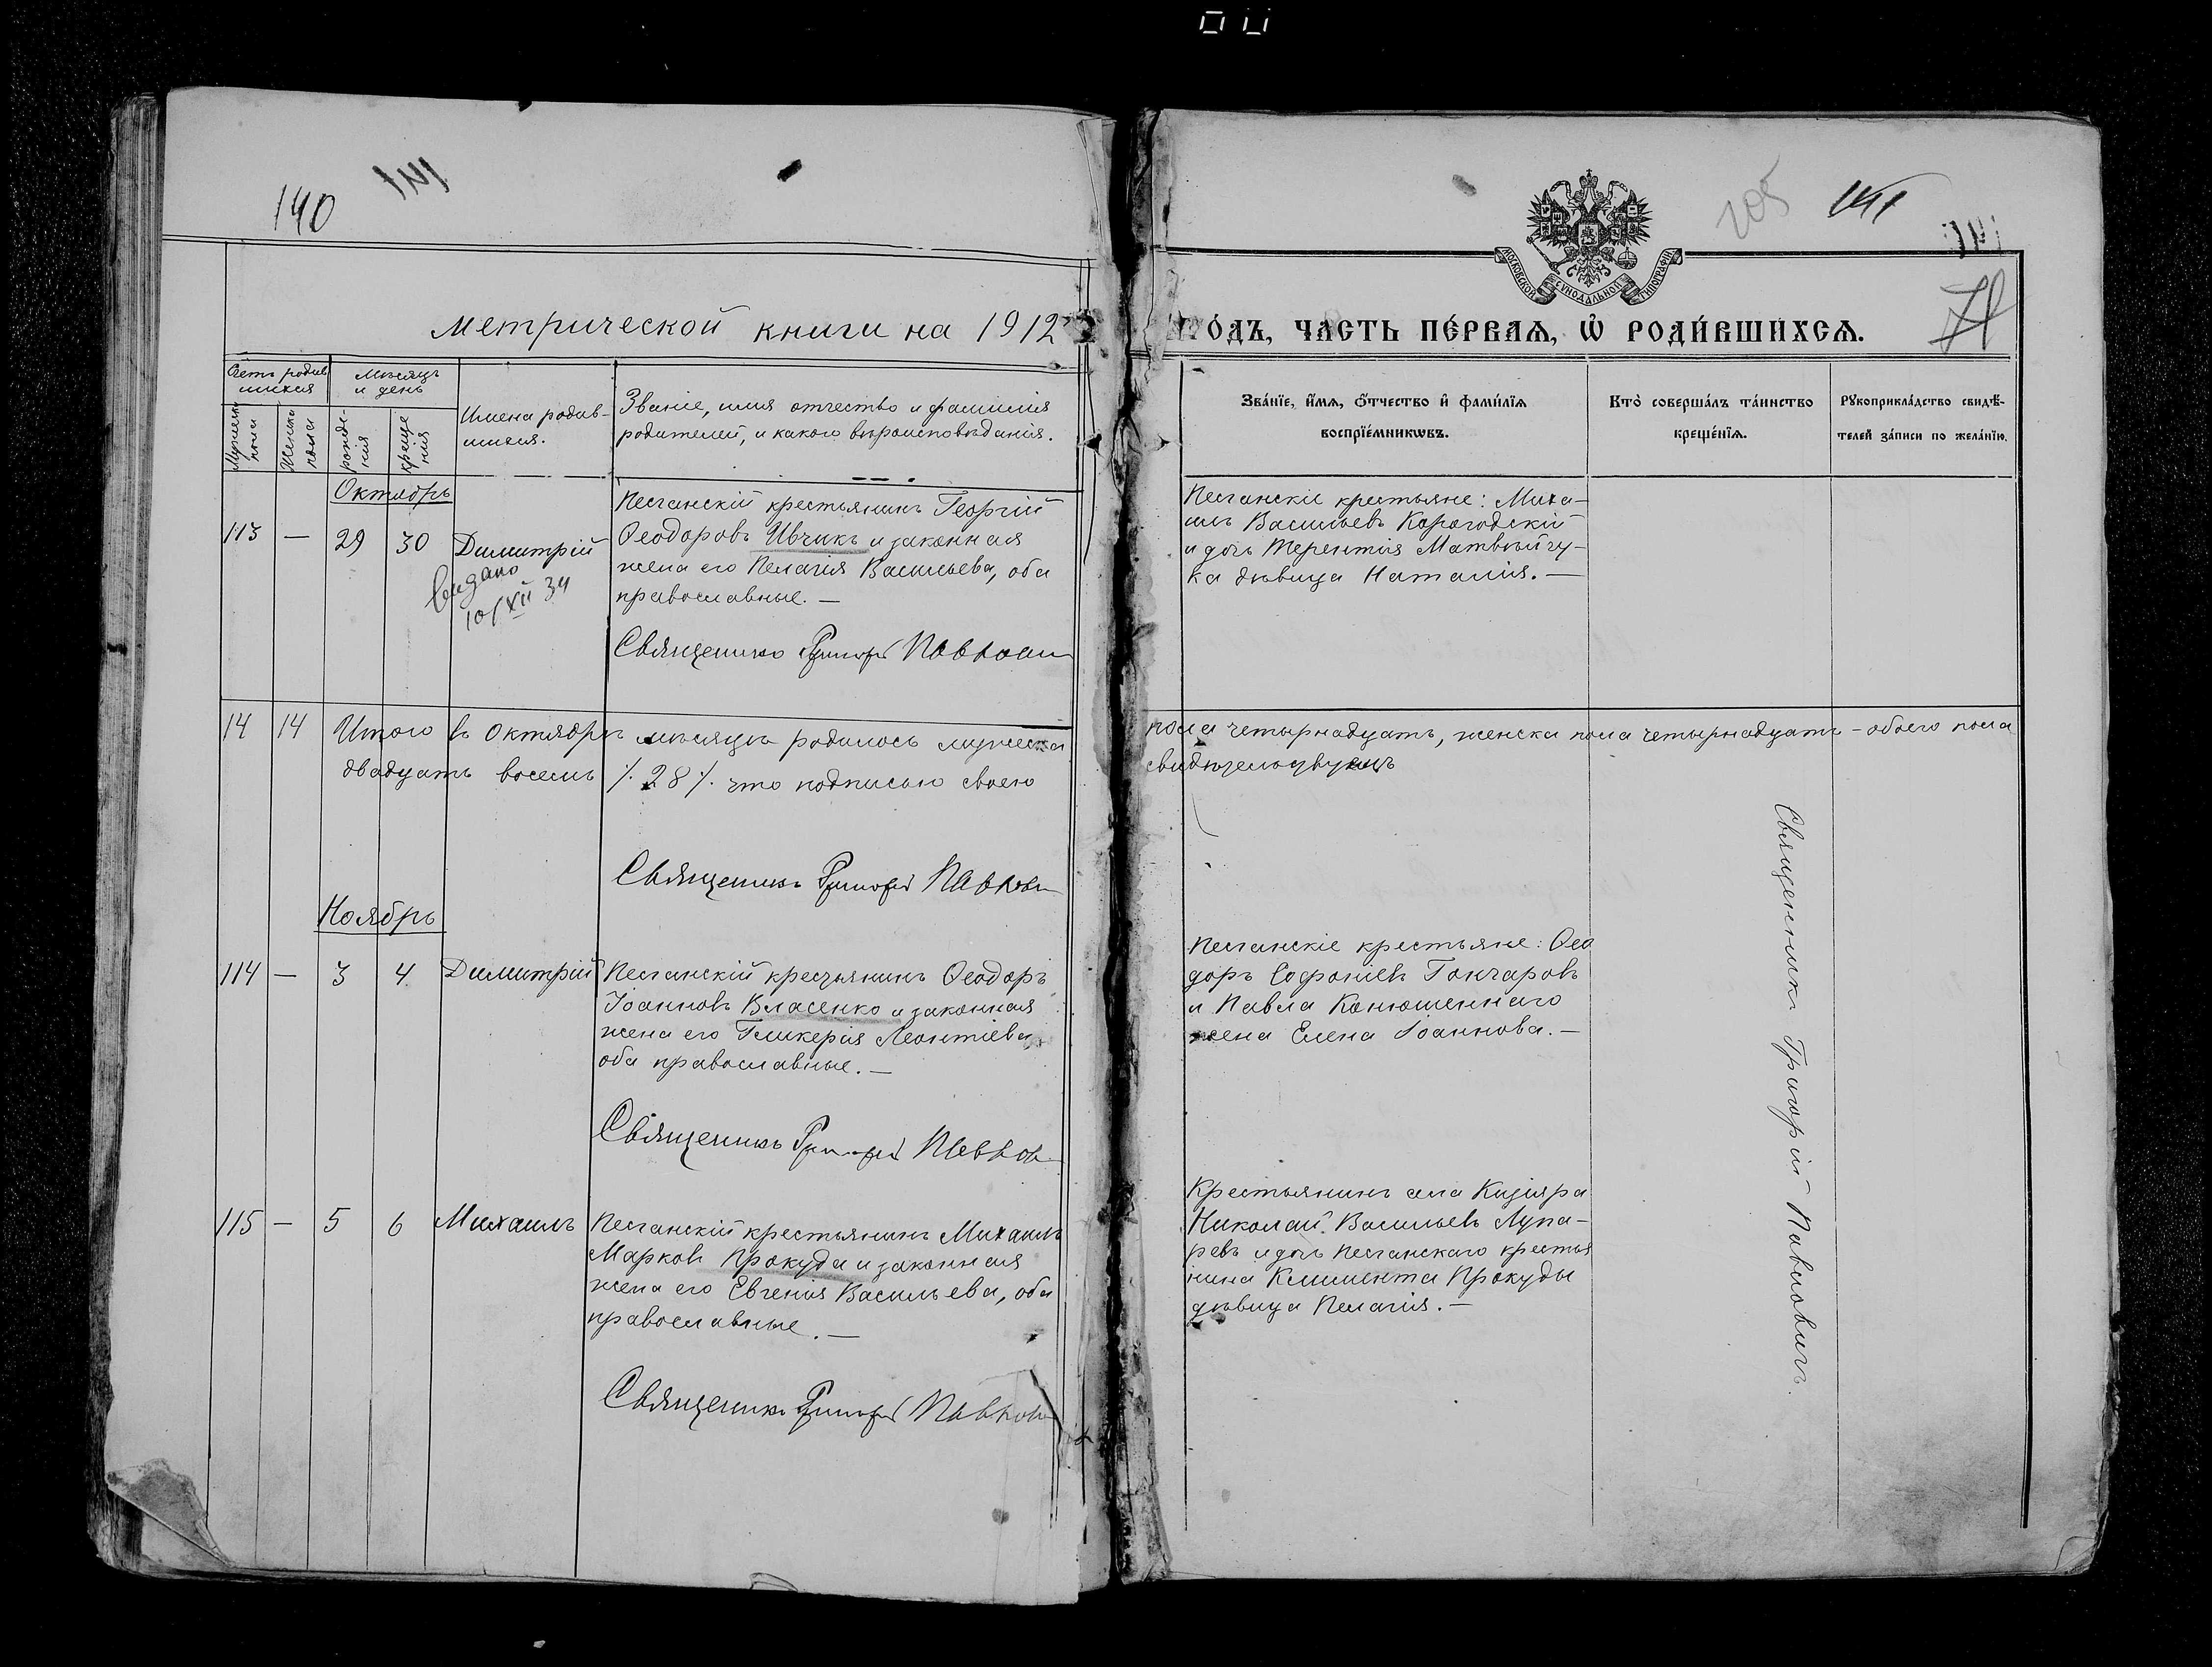 140
141
205
141
141
71
МОСКОВСКОЙ СѴНОДАЛЬНОЙ ТИПОГРАФІИ
Метрической книги на 1912
ГÓДЪ, ЧАСТЬ ПÉРВАЯ, Ѿ РОДИ́ВШИХСЯ.
Счетъ родив
шихся
Мѣсяцъ
и день
Имена родив-
шихся.
Званіе, имя отчество и фамилія
родителей, и какого вѣроисповѣданія.
Мужеска
пола
Женска
пола
рожде
нія
креще
нія
Зва́нїе, и҆́мѧ, ѻ҆́тчество и҆ фами́лїѧ
воспрїе́мникѡвъ.
Кто̀ соверша́лъ та́инство
креще́нїѧ.
Рꙋкоприкла́дство свидѣ́-
телей за́писи по жела́нїю.
Октябрь
113 — 29 30 Димитрій
Видано
10/XII 34
Песчанскій крестьянинъ Георгій
Ѳеодоровъ Ивчикъ и законная
жена его Пелагія Васильева, оба
православные. —
Священникъ Григорій Павлович
Песчанскіе крестьяне: Миха-
илъ Васильевъ Корогодскій
и дочь Терентія Матвѣйчу-
ка дѣвица Наталія. —
14 14 Итого въ Октябрѣ мѣсяцѣ родилось мужеска
пола четырнадцать, женска пола четырнадцать — обоего пола
двадцать восемь /. 28 /. что подписью своею
свидѣтельствуетъ
Священникъ Григорій Павлович
Ноябрь
114 — 3 4 Димитрій
Песчанскій крестьянинъ Ѳеодоръ
Іоанновъ Власенко и законная
жена его Гликерія Леонтіева
оба православные. —
Священникъ Григорій Павлович
Песчанскіе крестьяне: Ѳео
доръ Софоніевъ Гончаровъ
и Павла Конюшеннаго
жена Елена Іоаннова. —
115 — 5 6 Михаилъ
Песчанскій крестьянинъ Михаилъ
Марковъ Прокуда и законная
жена его Евгенія Васильева, оба
православные. —
Священникъ Григорій Павлович
Крестьянинъ села Кизіяра
Николай Васильевъ Лупа-
ревъ и дочь песчанскаго крестья
нина Климента Прокуды
дѣвица Пелагія. —
Священникъ Григорій Павловичъ.